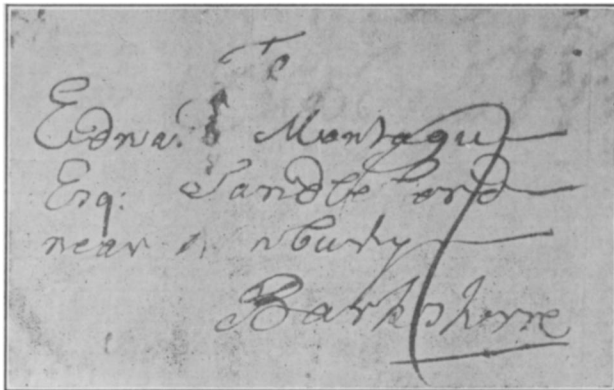 To
Edwa:d Montagu
Esq: Sandleford
near
Barkshire